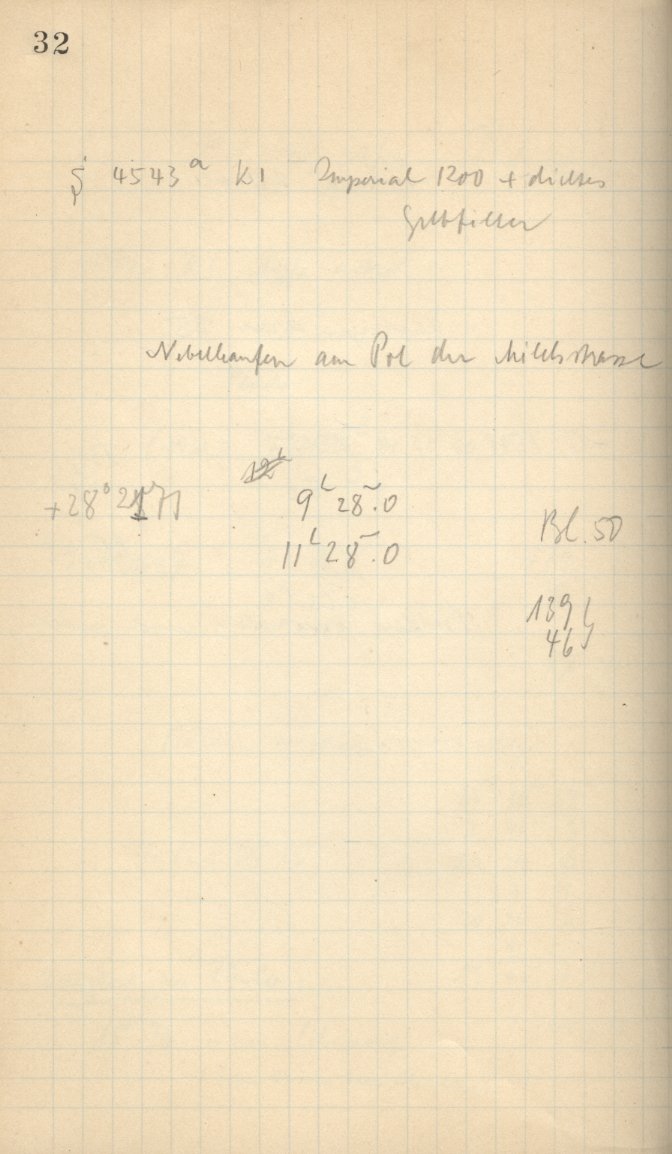 32
4543 a K1 Imperial 1200 + dichtes
Gelbfilter
Nebelhaufen am Pol der Milchstrasse
12h
+28° 2171 9h 28m.0
11h 28m.0
Bl. 50
139
46